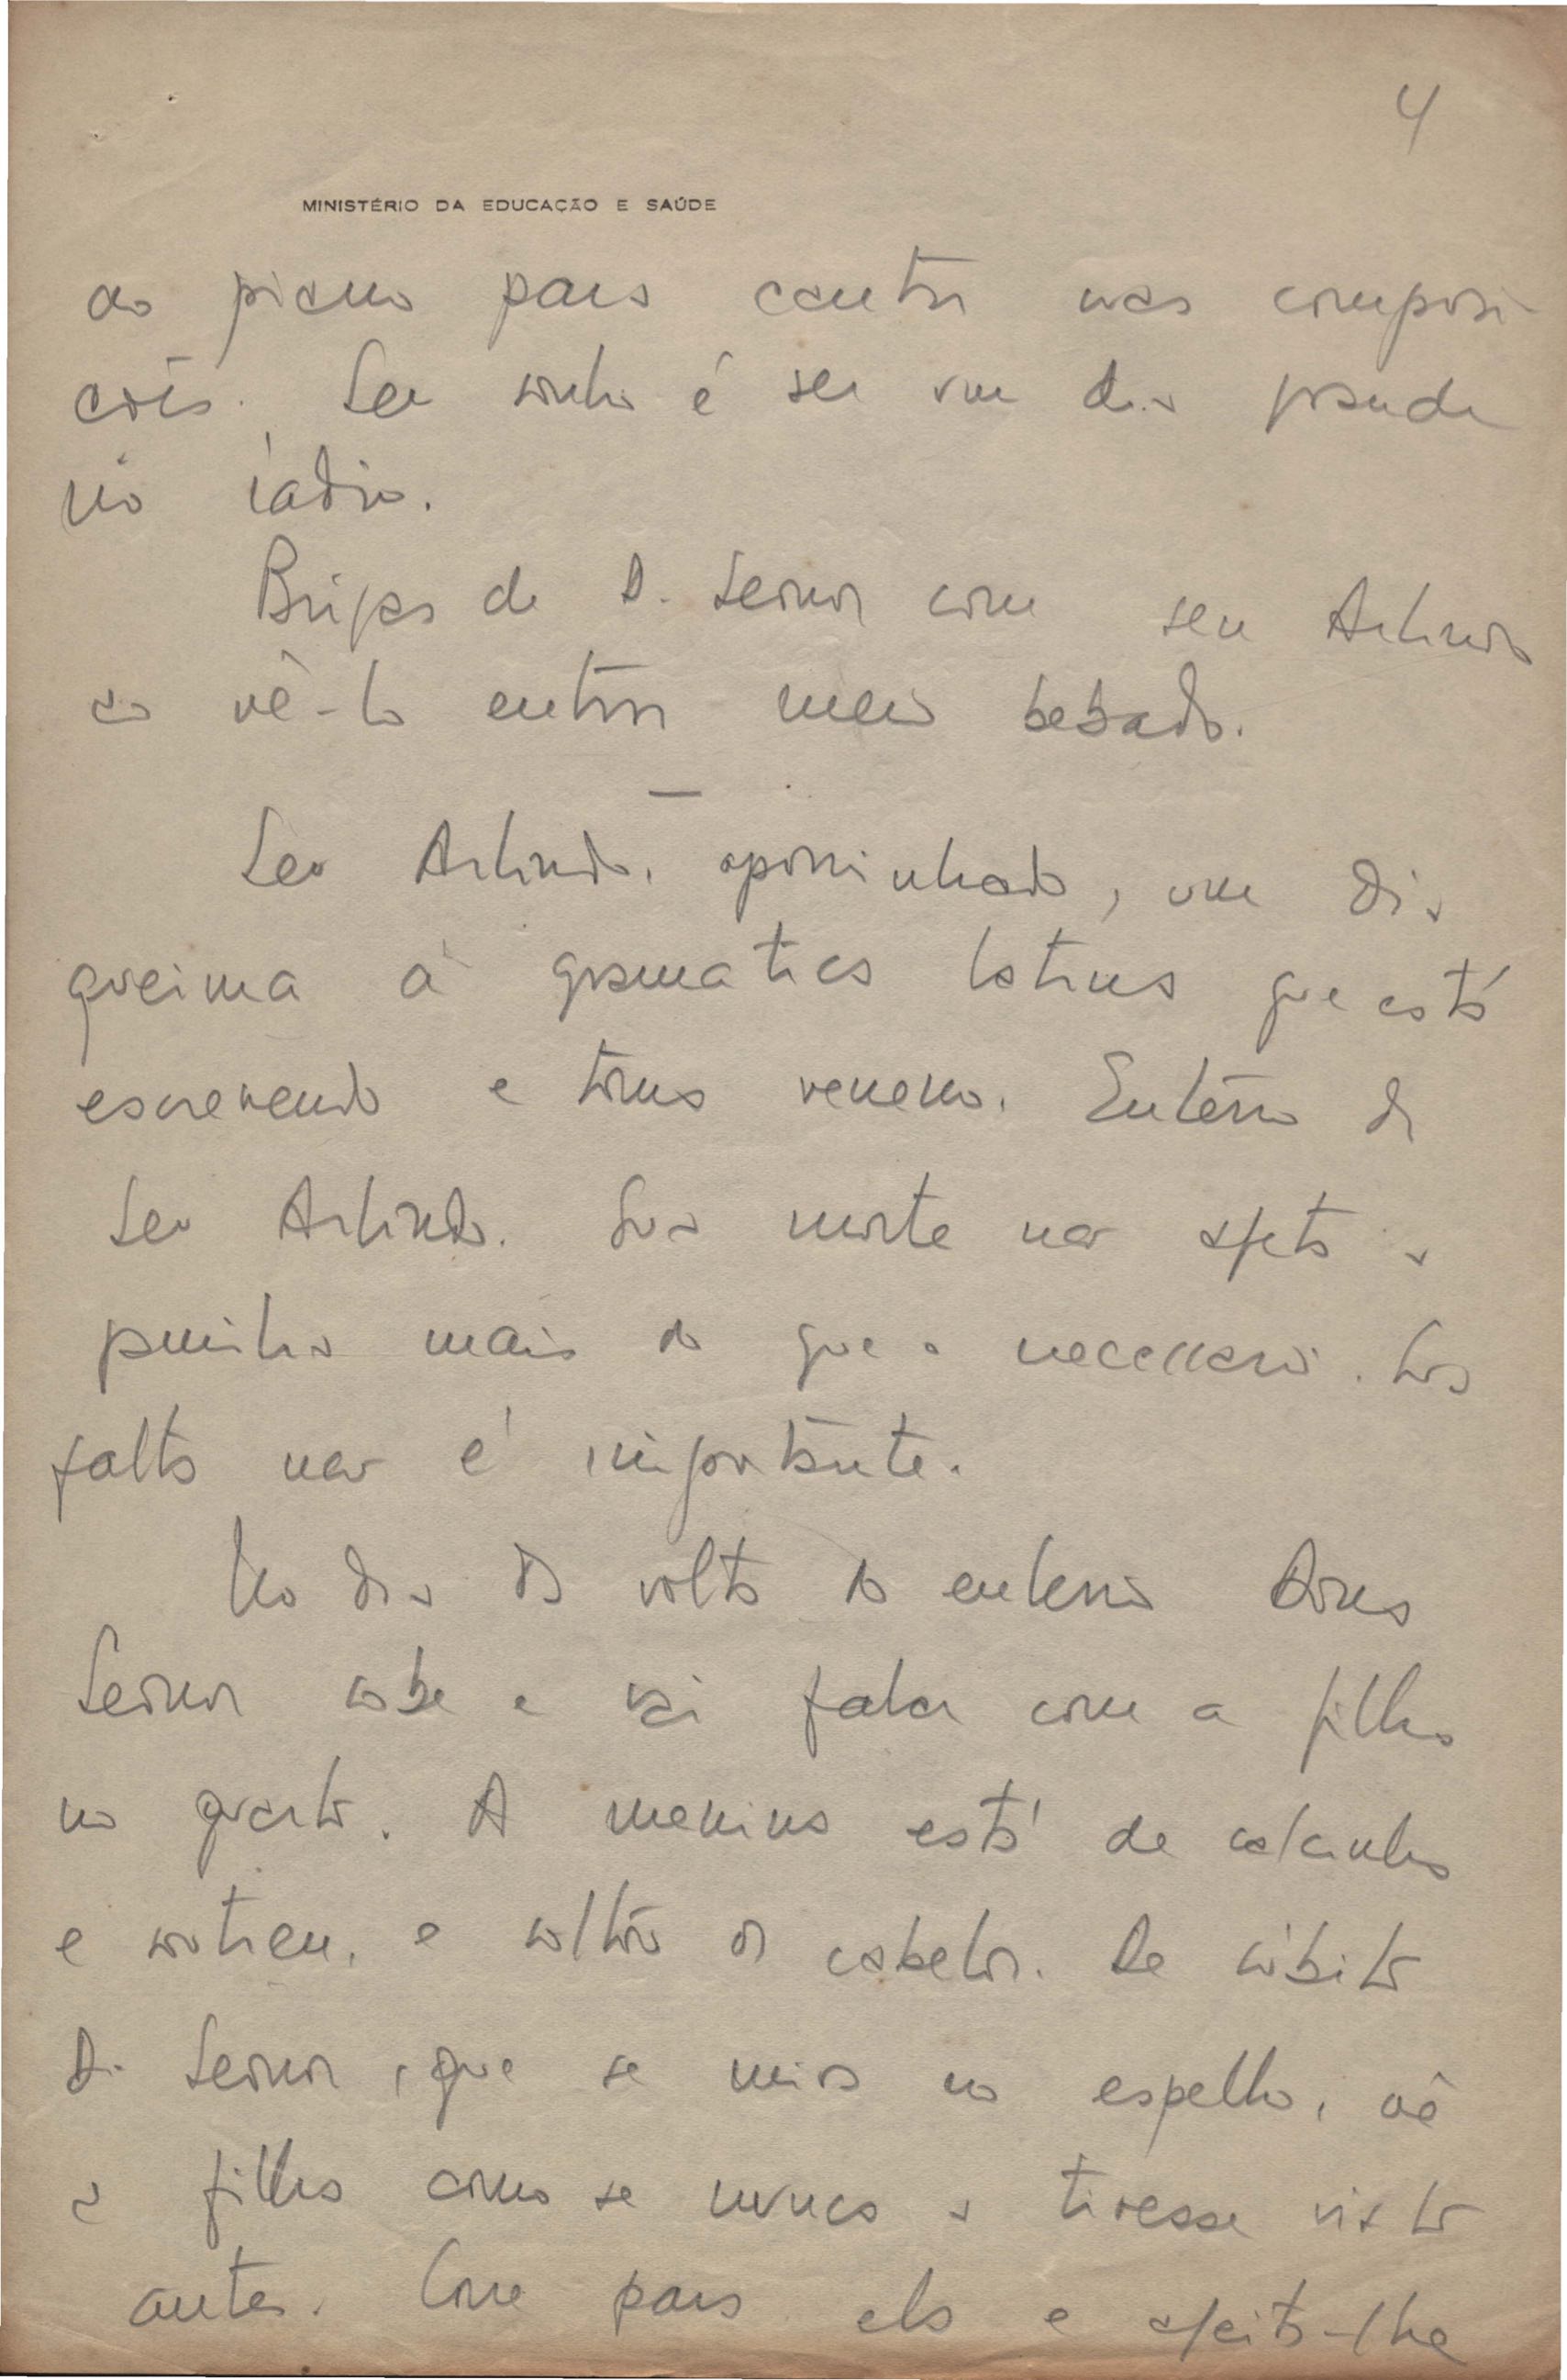 4
MINISTÉRIO DA EDUCAÇÃO E SAÚDE
ao piano para cantar suas composi-
cões. Seu sonho é ser um dia grande
no rádio.
Brigas de D. Leonor com seu Arlindo
ao vê-lo entrar meio bebado.
—
Seu Arlindo, aporrinhado, um dia
queima a gramatica latina que está
escrevendo e toma veneno. Enterro de
Seu Arlindo. Sua morte não afeta a
familia mais do que o necessario. Sua
falta não é importante.
No dia da volta do enterro Dona
Leonor sobe e vai falar com a filha
no quarto. A menina está de calcinha
e soutien, e soltou os cabelos. De súbito
D. Leonor, que se mira no espelho, vê
a filha como se nunca a tivesse visto
antes. Corre para ela e ajeita-lhe